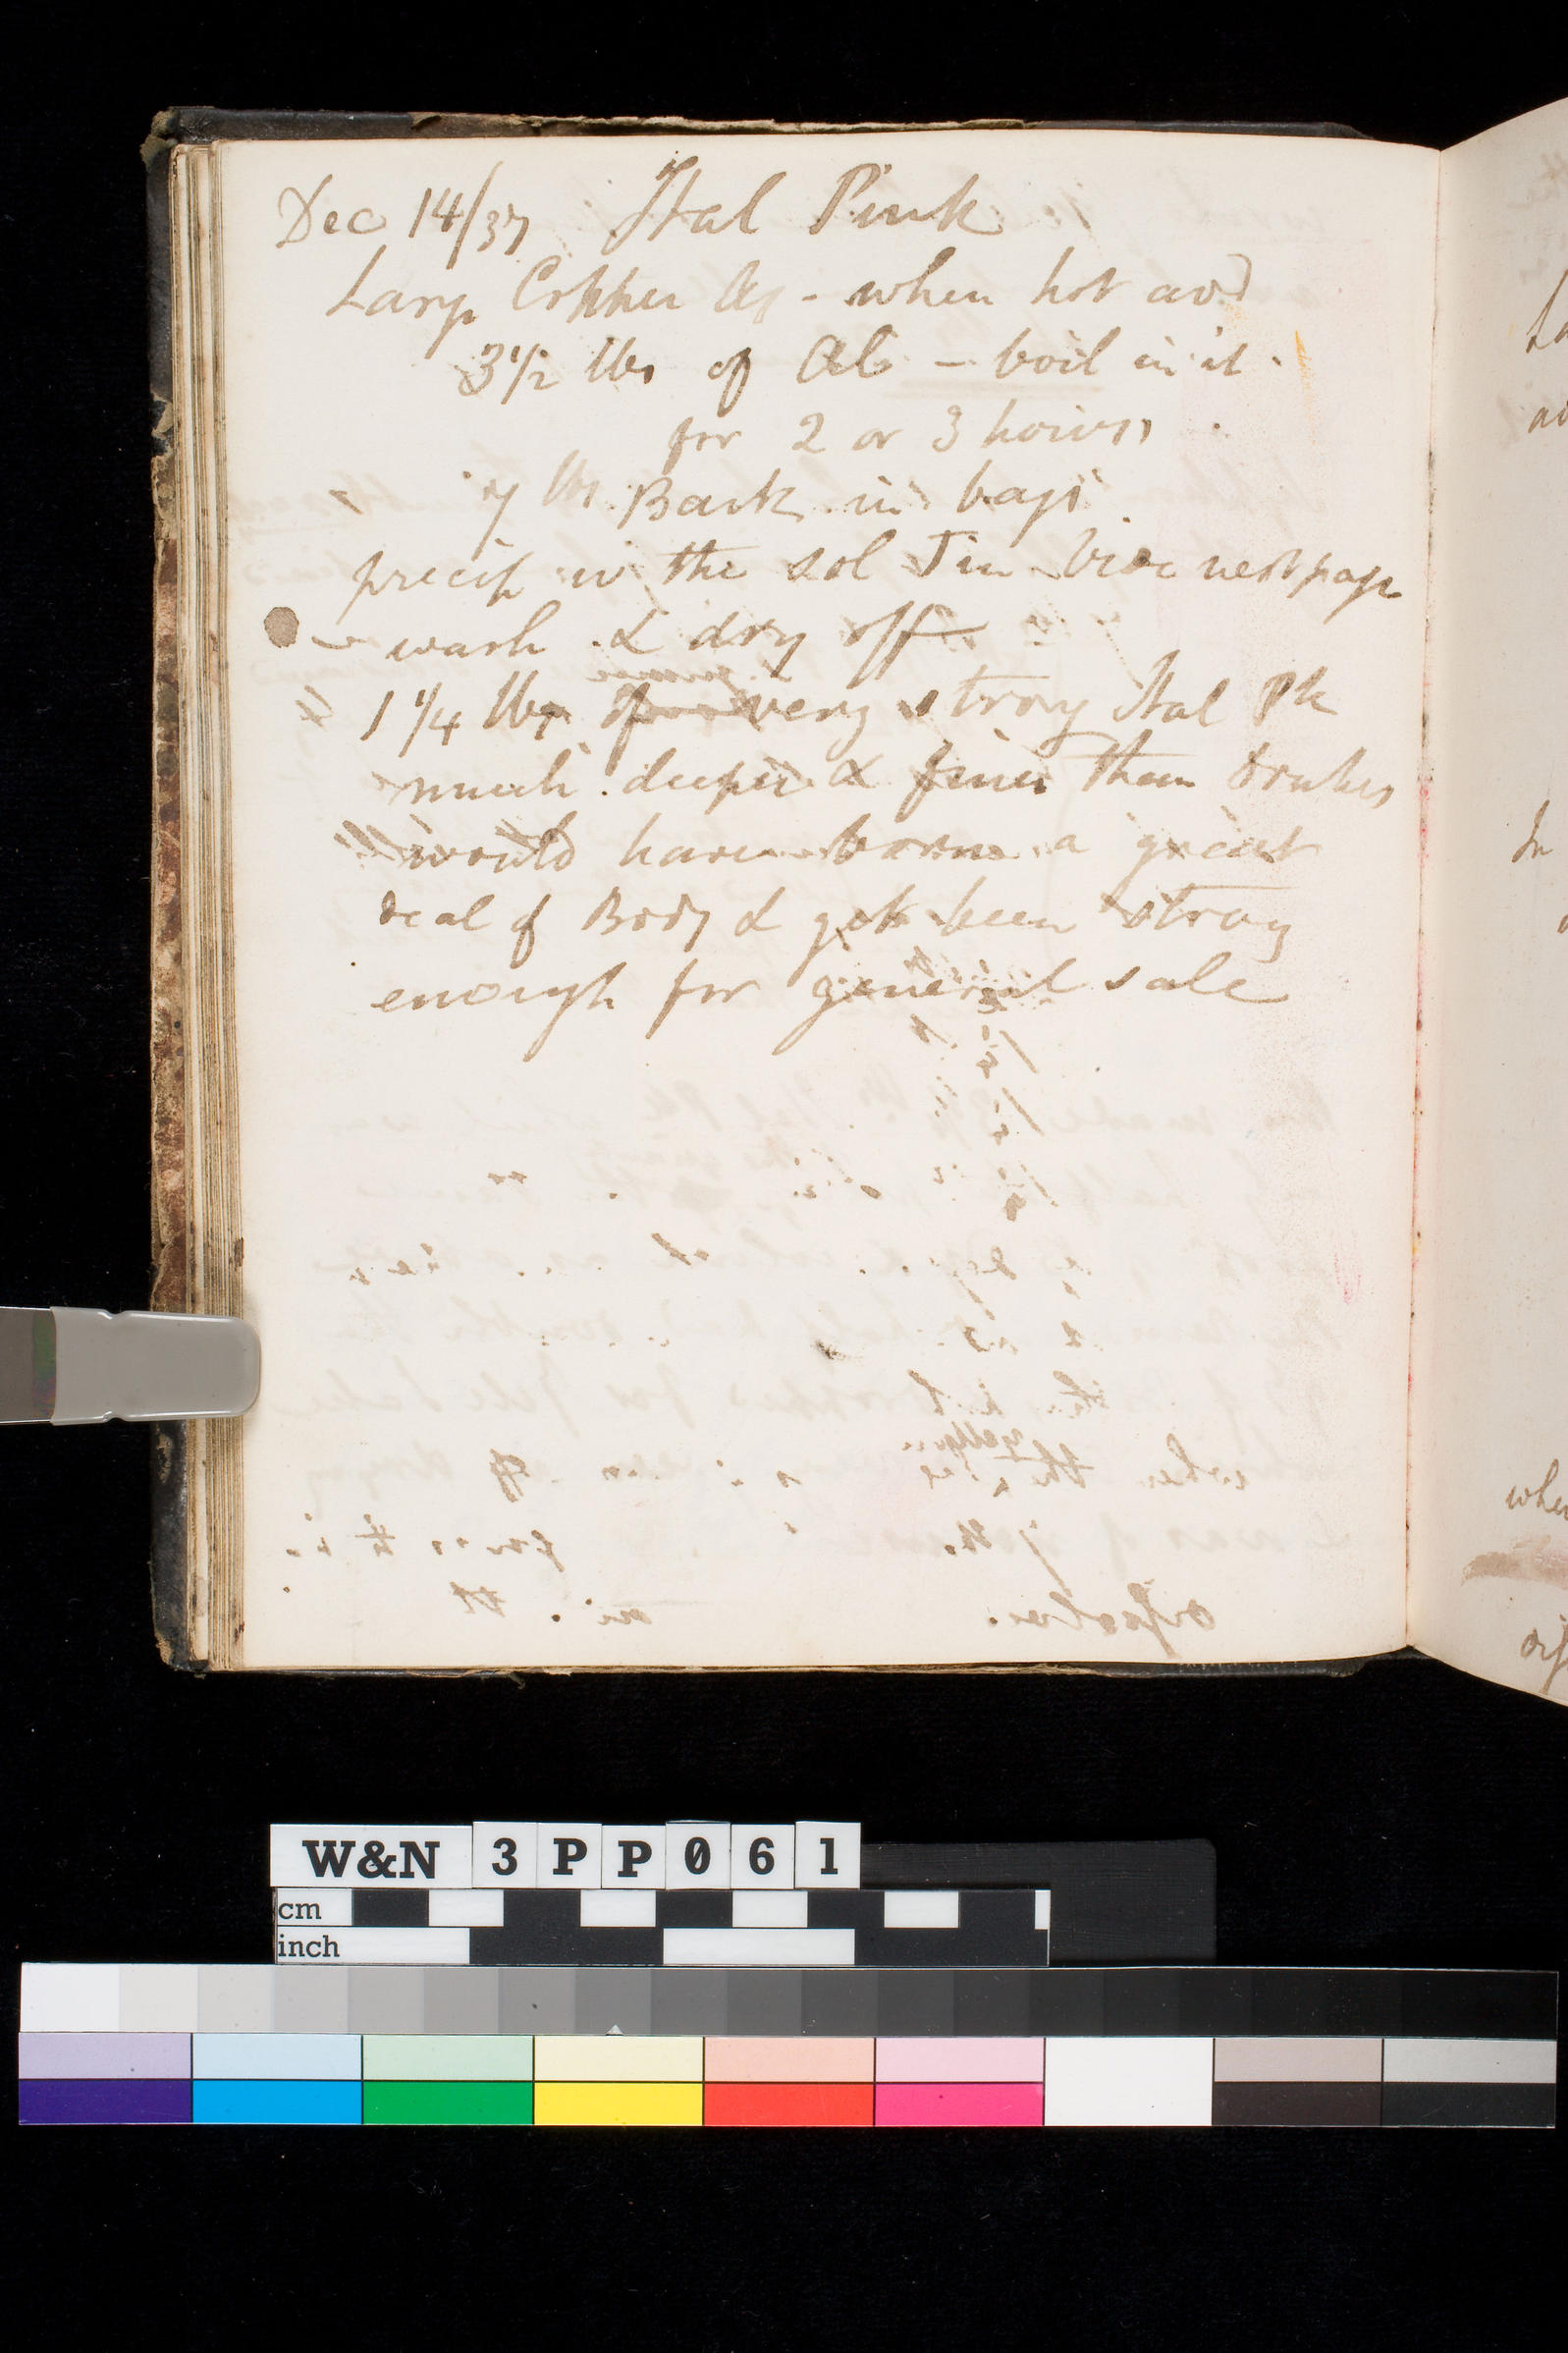 Dec 14/37 Ital Pink
Large Copper Aq - when hot add
3 1/2 lbs of Al - boil in it
for 2 or 3 hours
7 lbs Bark in bags
precip w the sol Tin Vide next page
wash & dry off
1 1/4 lbs very strong Ital Pk
much deeper & finer than Drakes
would have borne a great
deal of Body & yet been strong
enough for general sale
W&N 3PP061
cm
inch